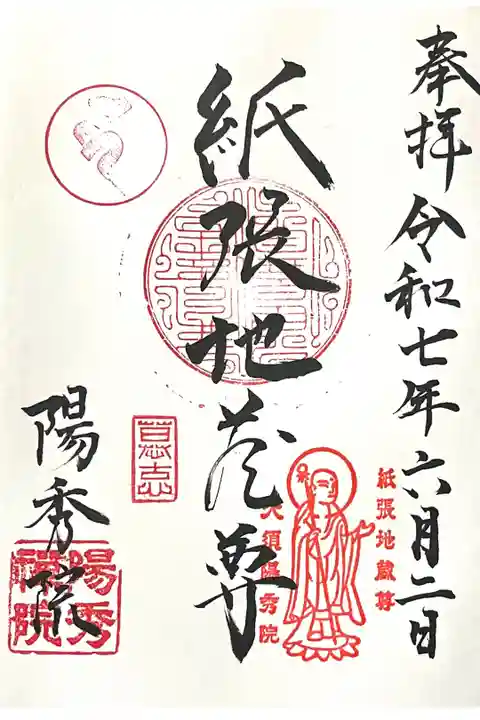 奉拝 令和七年 六月二日
紙張地蔵尊
紙張地蔵尊
大須陽秀院
陽秀院
陽秀禅院